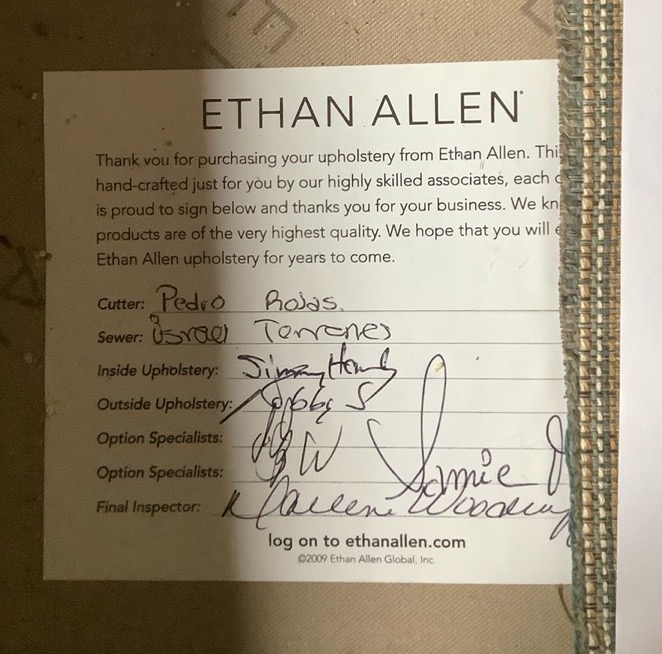 ETHAN ALLEN
Thank you for purchasing your upholstery from Ethan Allen. Thi
hand-crafted just for you by our highly skilled associates, each
is proud to sign below and thanks you for your business. We kn
products are of the very highest quality. We hope that you will
Ethan Allen upholstery for years to come.
Cutter: Pedro Rojas.
Sewer: Israel Terrones
Inside Upholstery: Jimmy
Outside Upholstery: Bobby S
Option Specialists: W
Option Specialists: Jamie
Final Inspector:
log on to ethanallen.com
©2009 Ethan Allen Global, Inc.